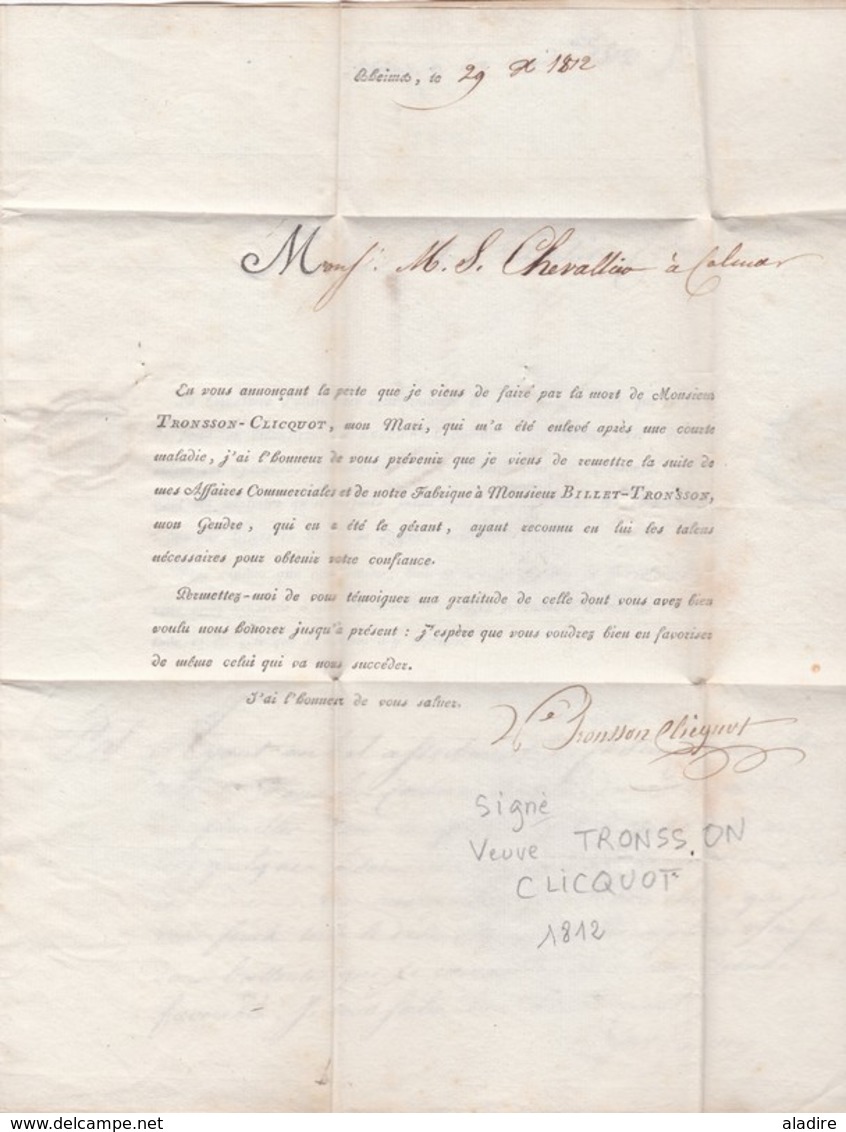 Rheims, le 29 X 1812
Mons. M. S. Chevallier à Colmar
En vous annonçant la perte que je viens de faire par la mort de Monsieur
TRONSSON-CLICQUOT, mon Mari, qui m'a été enlevé après une courte
maladie, j'ai l'honneur de vous prévenir que je viens de remettre la suite de
mes Affaires Commerciales et de notre Fabrique à Monsieur BILLET-TRONSSON,
mon Gendre, qui en a été le gérant, ayant reconnu en lui les talens
nécessaires pour obtenir votre confiance.
Permettez-moi de vous témoigner ma gratitude de celle dont vous avez bien
voulu nous honorer jusqu'à présent : j'espère que vous voudrez bien en favoriser
de même celui qui va nous succéder.
J'ai l'honneur de vous saluer.
Ve Tronsson Clicquot
Signé
Veuve TRONSSON
CLICQUOT
1812
www.delcampe.net
aladire